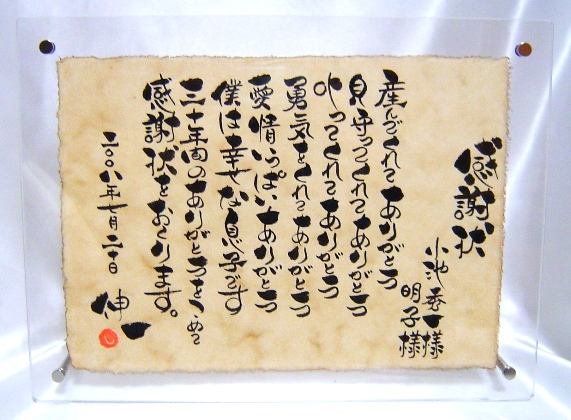 感謝状
小池秀一様
明子様
産んでくれてありがとう
見守ってくれてありがとう
叱ってくれてありがとう
勇気をくれてありがとう
愛情いっぱいありがとう
僕は幸せな息子です
三十年間のありがとうをこめて
感謝状をおくります。
二〇〇八年七月二十日
伸一